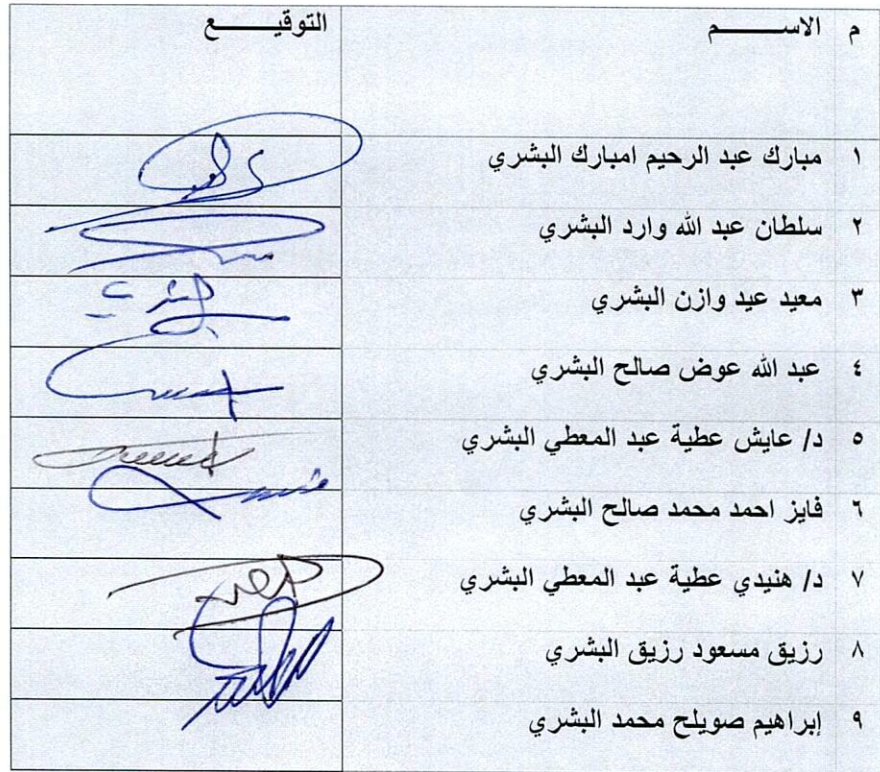 م الاســـــم التوقيـــــع
١ مبارك عبد الرحيم امبارك البشري
٢ سلطان عبد الله وارد البشري
٣ معيد عيد وازن البشري
٤ عبد الله عوض صالح البشري
٥ د/ عايش عطية عبد المعطي البشري
٦ فايز احمد محمد صالح البشري
٧ د/ هنيدي عطية عبد المعطي البشري
٨ رزيق مسعود رزيق البشري
٩ إبراهيم صويلح محمد البشري